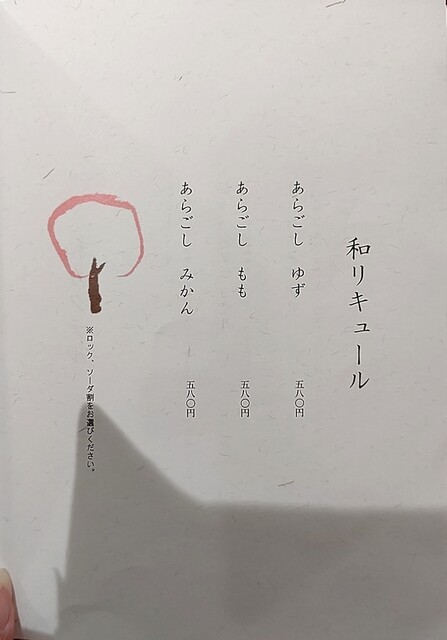 和リキュール
あらごし ゆず 五八〇円
あらごし もも 五八〇円
あらごし みかん 五八〇円
※ロック、ソーダ割をお選びください。